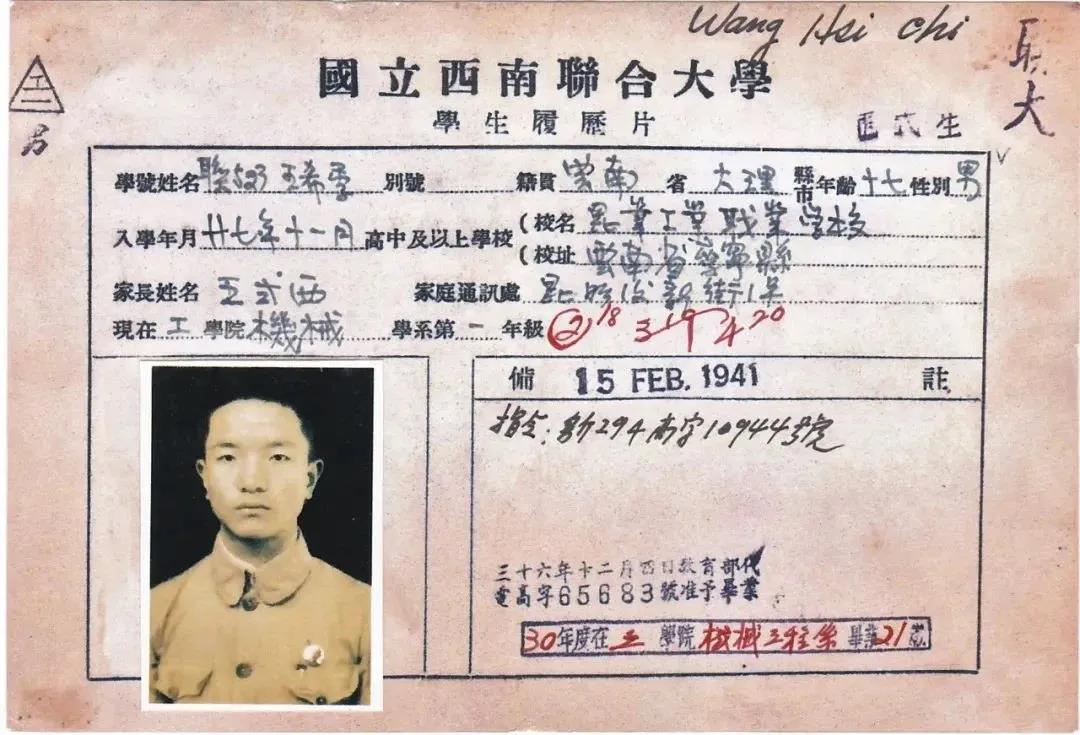 Wang Hsi Chi
工
男
國立西南聯合大學
學生履歷片
學號姓名 聯523 王希季 別號 籍貫 雲南 省 大理 縣市 年齡 十七 性別 男
入學年月 廿七年十一月 高中及以上學校 (校名 昆華工業職業学校
(校址 雲南省 縣
家長姓名 王式西 家庭通訊處 昆明 新街
現在 工 學院 機械 學系第 一 年級 ② 18 3 19 4 20
備 註
15 FEB. 1941
指令: 294 高字10944號
三十六年十二月四日教育部代
電高字65683號准予畢業
30年度在 工 學院 機械工程系 畢業 21